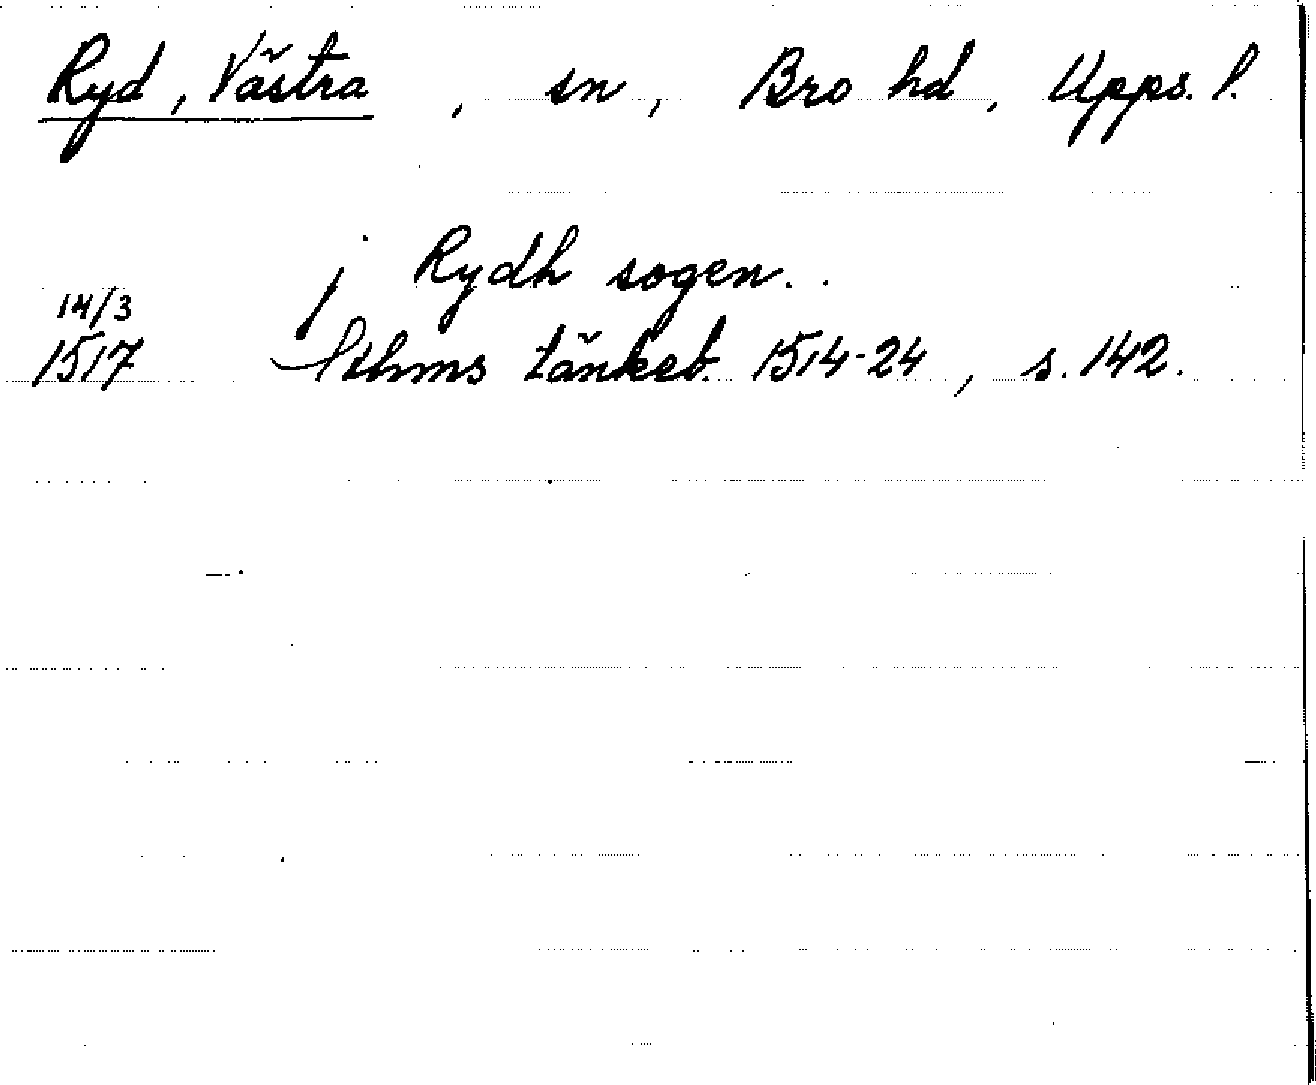 Ryd, Västra, sn, Bro hd, Upps. l.
j Rydh sogen..
14/3
1517 Sthms tänkeb. 1514-24, s. 142.